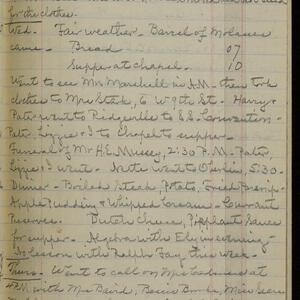 for the clothes.
Wed. Fair weather. Barrel of Molasses
came - Bread 07
Supper at chapel 10
Went to see Mrs. Marshall in A.M. - then took
clothes to Mrs. 6 W 9th St - Harry &
Pater went to Ridgeville to S.S. Convention -
Pater, Lizzie & I to Chapel to supper -
Funeral of Mr. H.E. Mussey, 2:30 P.M. - Pater,
Lizzie & I went. went Oberlin, 5:30 -
Dinner - Boiled Steak, Potato, Fried Parsnip -
Apple Pudding & Whipped Cream - Currant
Preserves. Dutch Cheese, Pieplant Sauce
for supper. Algebra with Ely in evening -
No lesson with Ralph Fay, this week -
Thurs. Went to call on Mrs. at
4 P.M. with Mrs. Baird, Bessie Miss Sears